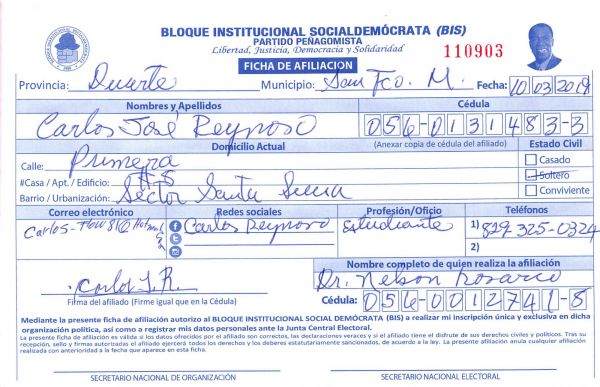 BLOQUE INSTITUCIONAL SOCIALDEMÓCRATA (BIS)
PARTIDO PEÑAGOMISTA
Libertad, Justicia, Democracia y Solidaridad
110903
FICHA DE AFILIACION
Provincia: Duarte Municipio: San Fco. M. Fecha: 10/03/2019
Nombres y Apellidos Cédula
Carlos José Reynoso 056-0131483-3
Domicilio Actual (Anexar copia de cédula del afiliado) Estado Civil
Calle: Primera Casado
#Casa / Apt. / Edificio: #8 Soltero
Barrio / Urbanización: Sector Santa Conviviente
Correo electrónico Redes sociales Profesión/Oficio Teléfonos
Carlos-Flow810 Carlos Reynoso Estudiante 1) 829-325-0324
2)
Carlos J. R. Nombre completo de quien realiza la afiliación
Dr. Nelson Rosario
Firma del afiliado (Firme igual que en la Cédula) Cédula: 056-0012741-8
Mediante la presente ficha de afiliación autorizo al BLOQUE INSTITUCIONAL SOCIAL DEMÓCRATA (BIS) a realizar mi inscripción única y exclusiva en dicha
organización política, así como a registrar mis datos personales ante la Junta Central Electoral.
La presente ficha de afiliación es válida si los datos ofrecidos por el afiliado son correctos, las declaraciones veraces y si el afiliado tiene el disfrute de sus derechos civiles y políticos. Tras su
recepción, sello y firmas autorizadas el afiliado ejercerá todos los derechos y los deberes estatutariamente sancionados, de acuerdo a la ley. La presente afiliación anula cualquier afiliación
realizada con anterioridad a la fecha que aparece en esta ficha.
SECRETARIO NACIONAL DE ORGANIZACIÓN SECRETARIO NACIONAL ELECTORAL